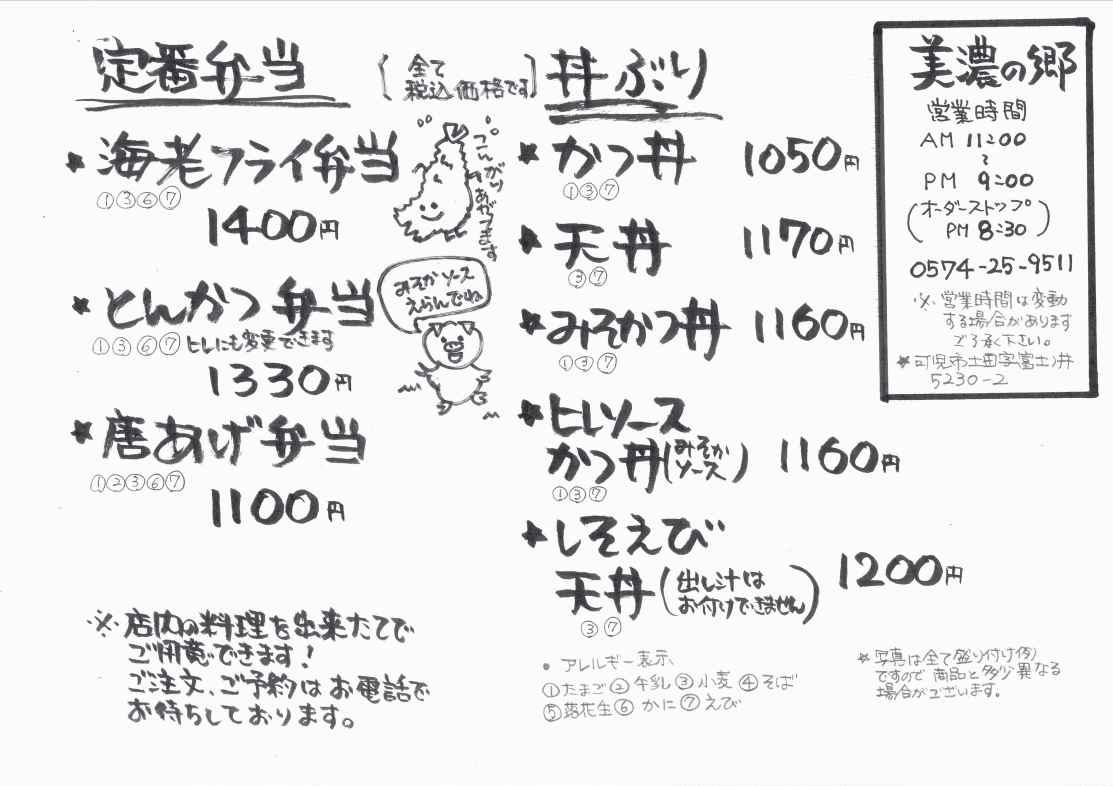 定番弁当
(全て
税込価格です)
★海老フライ弁当
①③⑥⑦
1400円
こんがり
あがってます
★とんかつ弁当
①③⑥⑦ヒレにも変更できます
1330円
みそかソース
えらんでね
★唐あげ弁当
①②③⑥⑦
1100円
※店内の料理を出来たてで
ご用意できます!
ご注文、ご予約はお電話で
お待ちしております。
丼ぶり
★かつ丼 1050円
①③⑦
★天丼 1170円
③⑦
★みそかつ丼 1160円
①③⑦
★ヒレソース
かつ丼(みそか
ソース) 1160円
①③⑦
★しそえび
天丼(出し汁は
お付けできません) 1200円
③⑦
・アレルギー表示
①たまご②牛乳③小麦④そば
⑤落花生⑥かに⑦えび
美濃の郷
営業時間
AM 11:00
~
PM 9:00
(オーダーストップ
PM 8:30)
0574-25-9511
※営業時間は変動
する場合があります
ご了承下さい。
★可児市土田字富士ノ井
5230-2
★写真は全て盛り付け例
ですので商品と多少異なる
場合がございます。